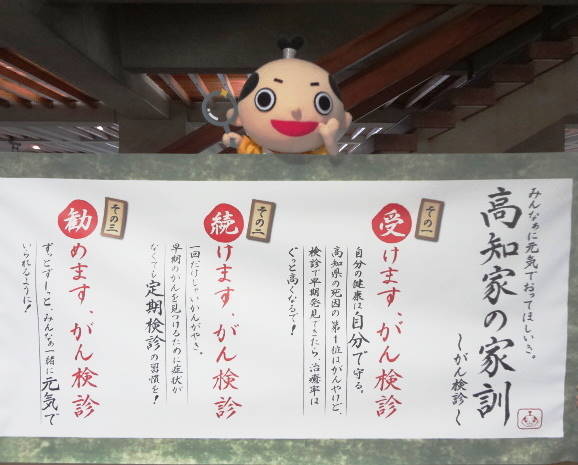 みんなぁに元気でおってほしいき。
高知家の家訓
～がん検診～
その一
受けます、がん検診
自分の健康は自分で守る。
高知県の死因の第1位はがんやけど、
検診で早期発見できたら、治療率は
ぐっと高くなるで！
その二
続けます、がん検診
一回だけじゃいかんがやき。
早期のがんを見つけるために症状が
なくても定期検診の習慣を！
その三
勧めます、がん検診
ずっとずーっと、みんなぁ一緒に元気で
いられるように！